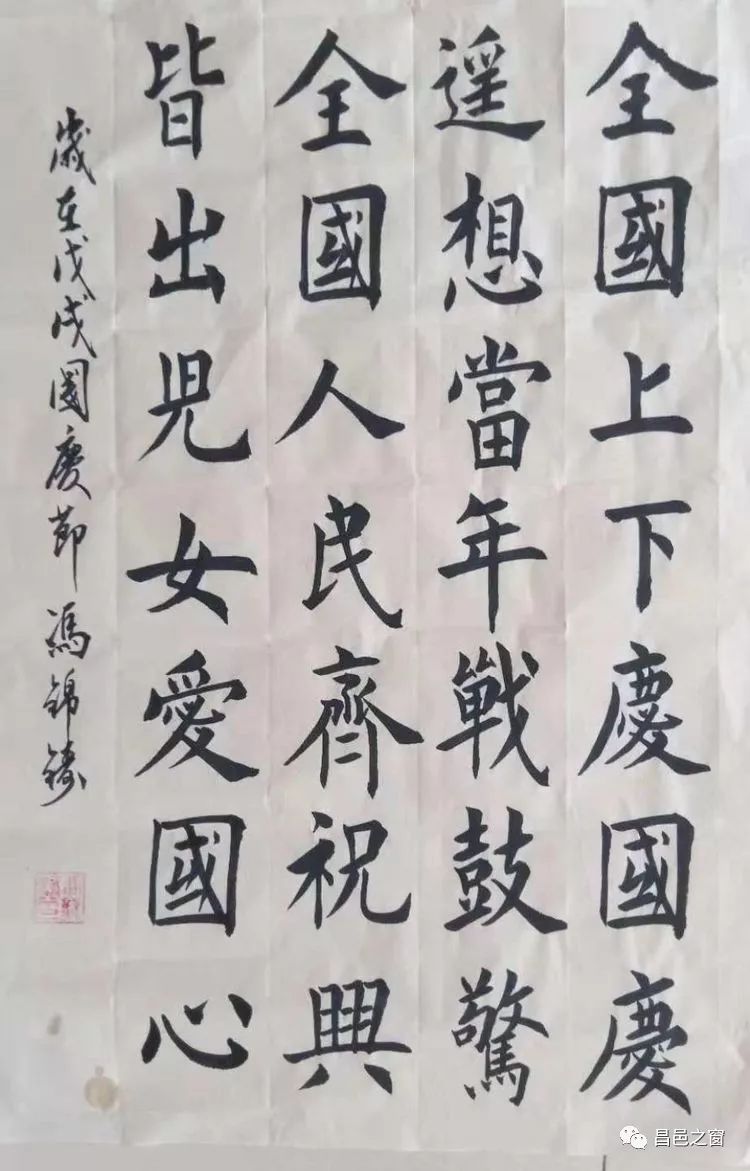 全國上下慶國慶
遥想當年戰鼓驚
全國人民齊祝興
皆出児女愛國心
歲在戊戌國慶節馮錦
昌邑之窗